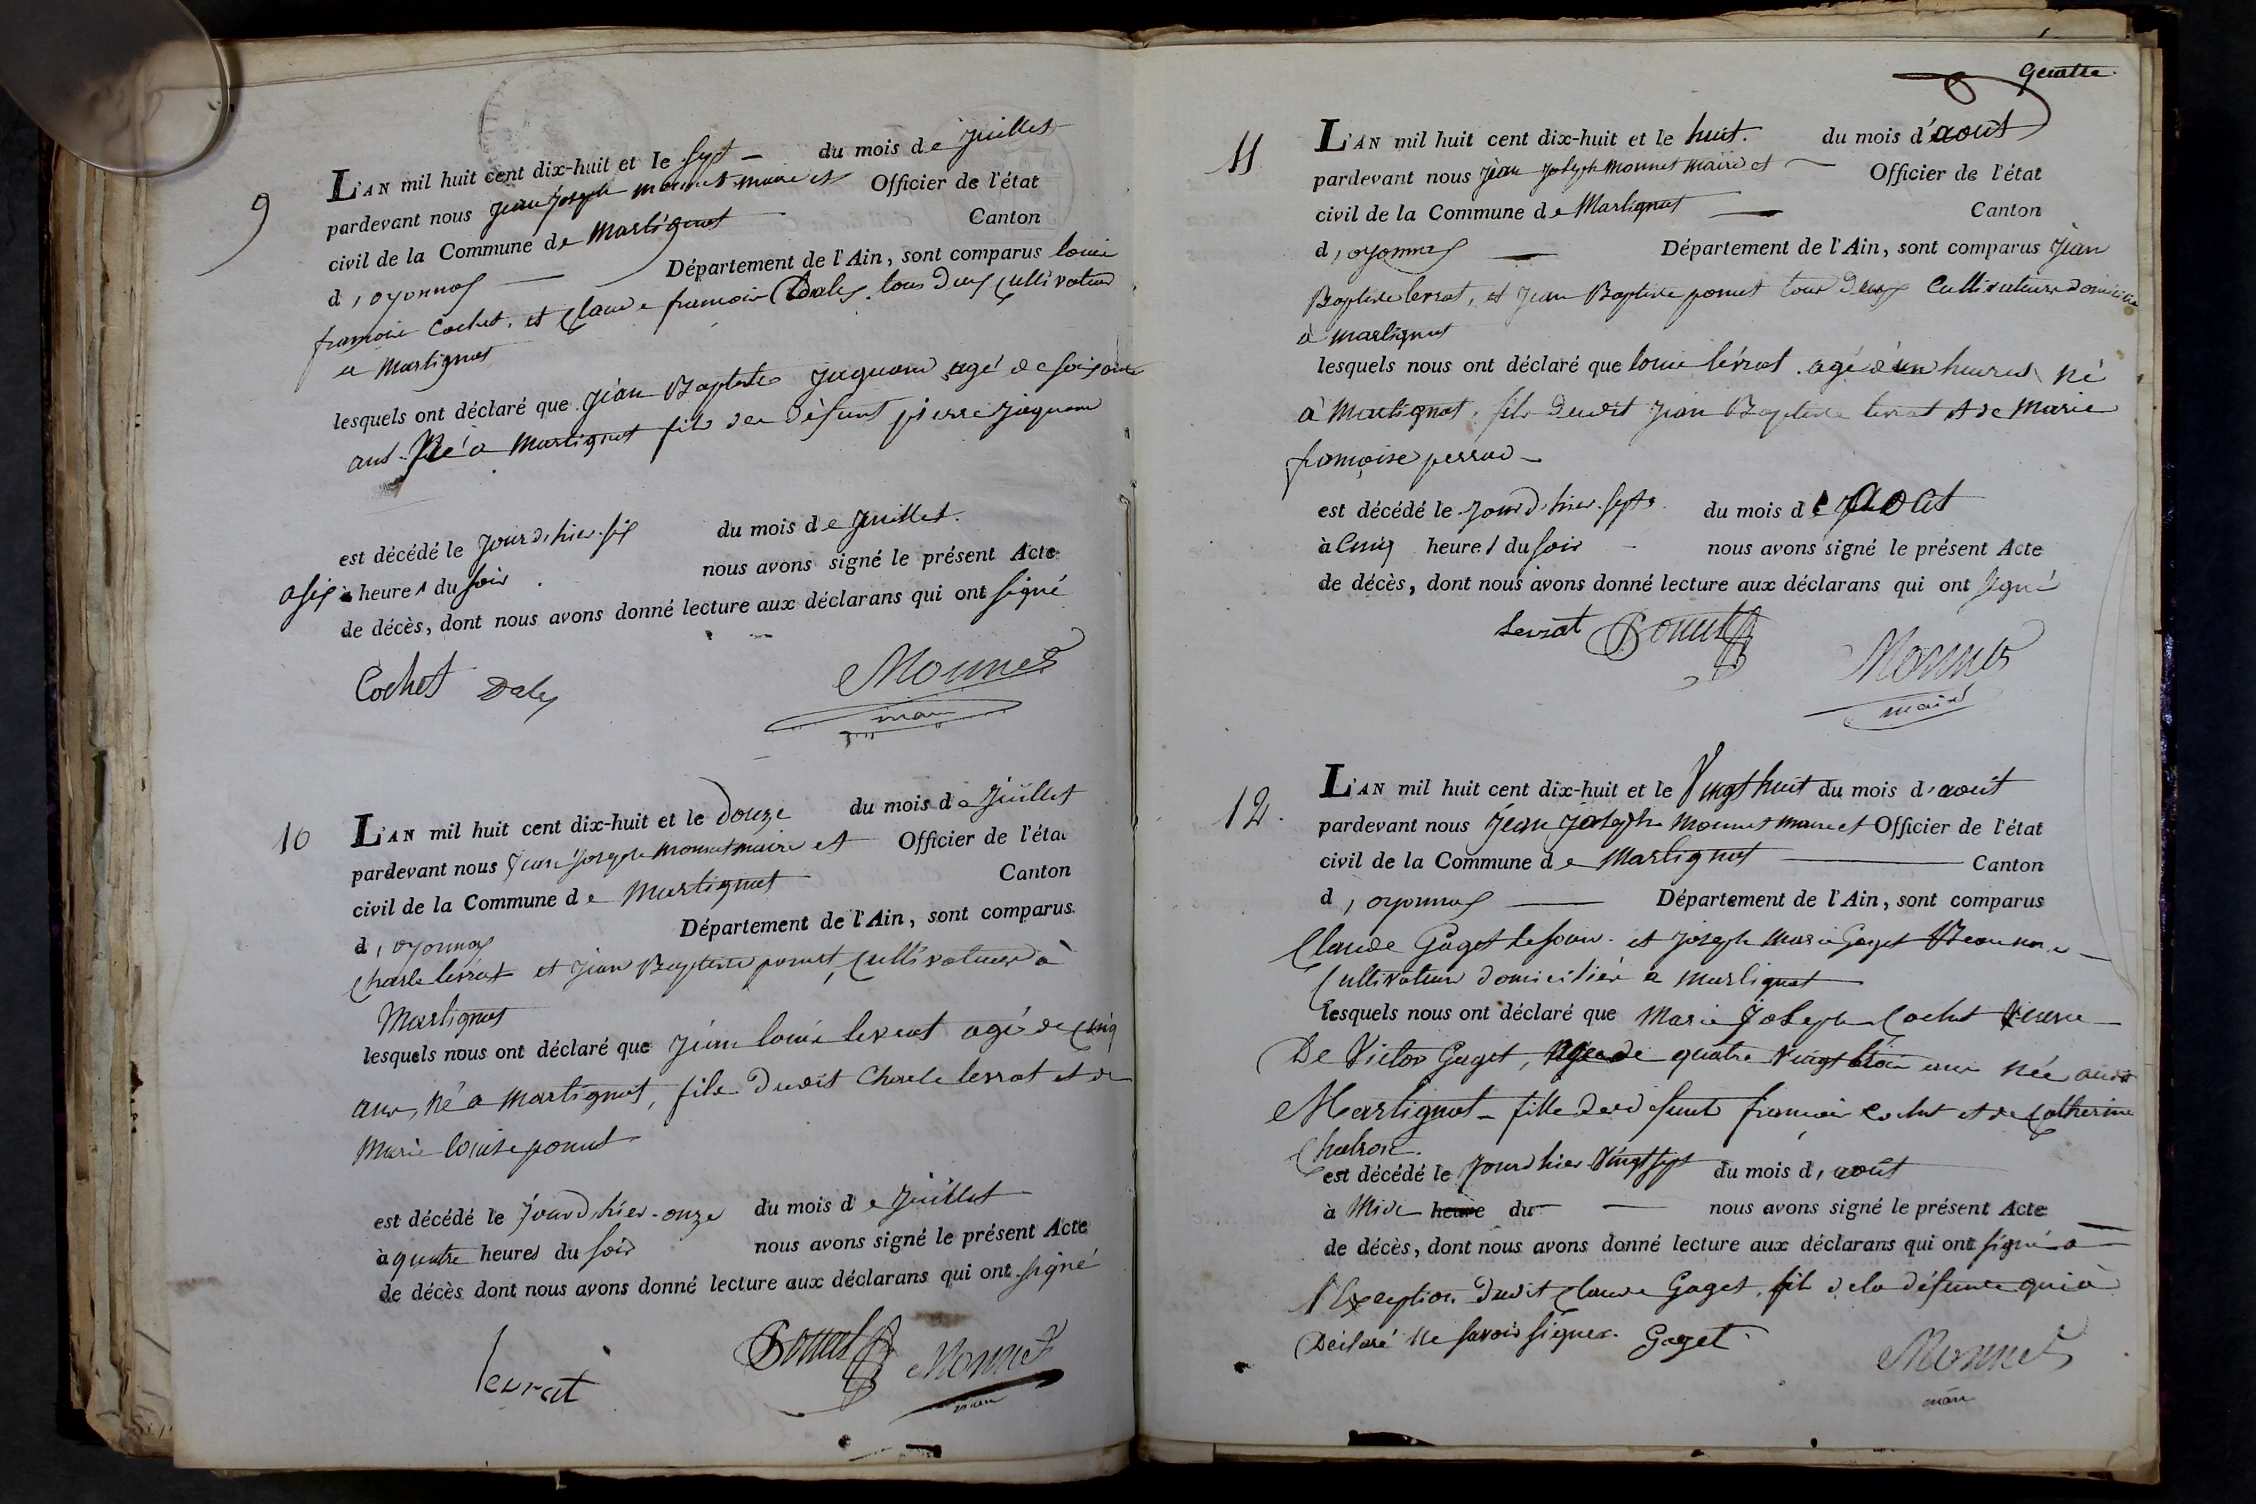 9
L'AN mil huit cent dix-huit et le sept du mois de Juillet
pardevant nous Jean Joseph monnet maire et Officier de l'état
civil de la Commune de Martignat Canton
d'oyonnax Département de l'Ain, sont comparus louis
francois Cochet, et Claude francois Daley tous deux Cultivateur
a Martignat
lesquels ont déclaré que Jean Baptiste Jaquand agé de soixante
ans Né a Martignat fils de defunt pierre Jaquand
est décédé le Jourd'hier six du mois de Juillet
a six heures du soir nous avons signé le présent Acte
de décès, dont nous avons donné lecture aux déclarans qui ont signé
Cochet Daley Monnet
maire
10
L'AN mil huit cent dix-huit et le Douze du mois de Juillet
pardevant nous Jean Joseph monnet maire et Officier de l'état
civil de la Commune de Martignat Canton
d'oyonnax Département de l'Ain, sont comparus
Charle levrat et Jean Baptiste poncet, Cultivateurs à
Martignat
lesquels nous ont déclaré que Jean louis levrat agé de Cinq
ans, Né a Martignat, fils dudit Charle levrat et de
Marie louise poncet
est décédé le Jourd'hier onze du mois de Juillet
à quatre heures du soir nous avons signé le présent Acte
de décès dont nous avons donné lecture aux déclarans qui ont signé
levrat Poncet Monnet
maire
Quatre
11
L'AN mil huit cent dix-huit et le huit du mois d'août
pardevant nous Jean Joseph Monnet maire et Officier de l'état
civil de la Commune de Martignat Canton
d'oyonnax Département de l'Ain, sont comparus Jean
Baptiste levrat, et Jean Baptiste poncet tous deux Cultivateurs
à Martignat
lesquels nous ont déclaré que louis lévrat agé d'un heures Né
à Martignat, fils dudit Jean Baptiste levrat et de Marie
françoise perrad
est décédé le Jourd'hier sept du mois d'Août
à Cinq heures du soir nous avons signé le présent Acte
de décès, dont nous avons donné lecture aux déclarans qui ont signé
Levrat Poncet Monnet
maire
12.
L'AN mil huit cent dix-huit et le Vingt huit du mois d'août
pardevant nous Jean Joseph Monnet maire et Officier de l'état
civil de la Commune de Martignat Canton
d'oyonnax Département de l'Ain, sont comparus
Claude Gaget et Joseph Marie Gaget
Cultivateurs domiciliés a Martignat
lesquels nous ont déclaré que Marie Joseph Cochet Veuve
De Victor Gaget, Agée de quatre Vingt trois ans Née audit
Martignat fille de defunt francois Cochet et de Catherine
est décédé le Jourd'hier Vingt sept du mois d'août
à Midi heure du nous avons signé le présent Acte
de décès, dont nous avons donné lecture aux déclarans qui ont signé a
l'Exception dudit Claude Gaget, fils de la défunte qui à
Déclaré Ne savoir signer. Gaget Monnet
maire